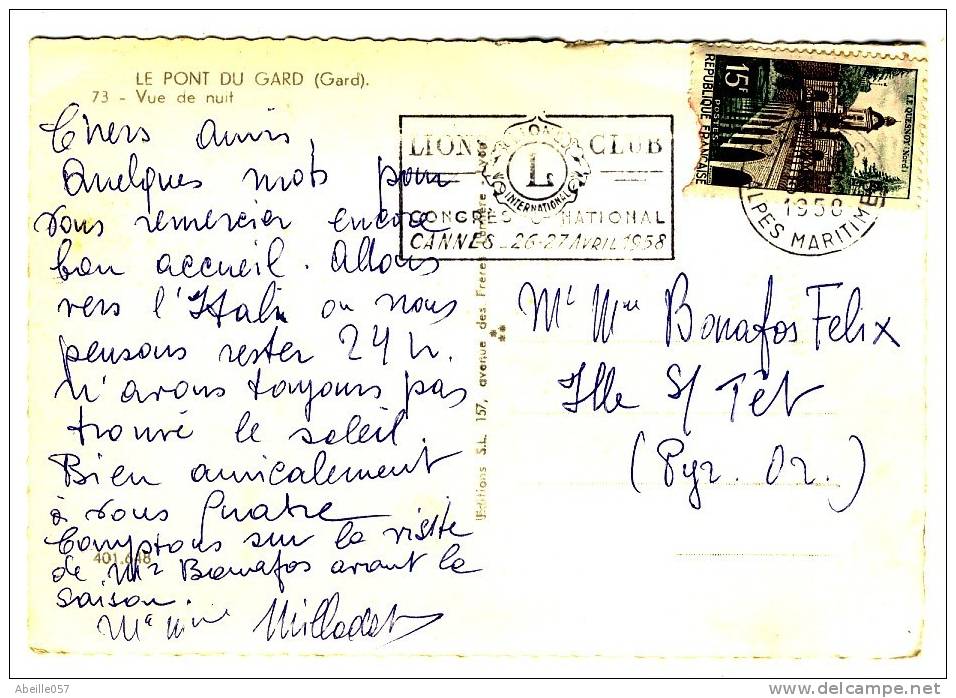 LE PONT DU GARD (Gard).
73 - Vue de nuit
Chers amis,
Quelques mots pour
vous remercier encore
bon accueil. Allons
vers l'Italie ou nous
pensons rester 24 h.
N'avons toujours pas
trouvé le soleil.
Bien amicalement
à vous quatre
Comptons sur la visite
de Mr Bonafos avant la
saison.
Mr Mme Milladet
401.648
Editions S.L. 157, avenue des Frères Lumière
LIONS CLUB
LIONS
L
INTERNATIONAL
CONGRÈS NATIONAL
CANNES - 26-27 AVRIL 1958
15F
POSTES
REPUBLIQUE FRANÇAISE
LE QUESNOY (Nord)
1958
ALPES MARITIMES
Mr Mme Bonafos Felix
Ille S/ Têt
(Pyr. Or.)
Abeille057
delcampe.net